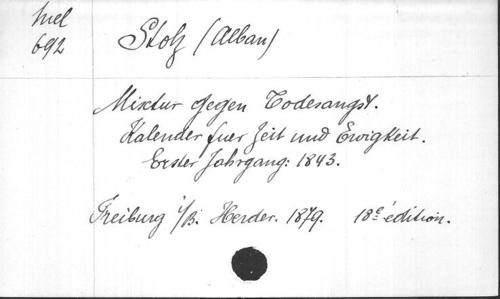 Mel
692
Stolz (Alban)
Mixtur gegen Todesangst.
Kalender fuer Zeit und Ewigkeit.
Erster Jahrgang: 1843.
Freiburg i/B. Herder. 1879. 18e édition.